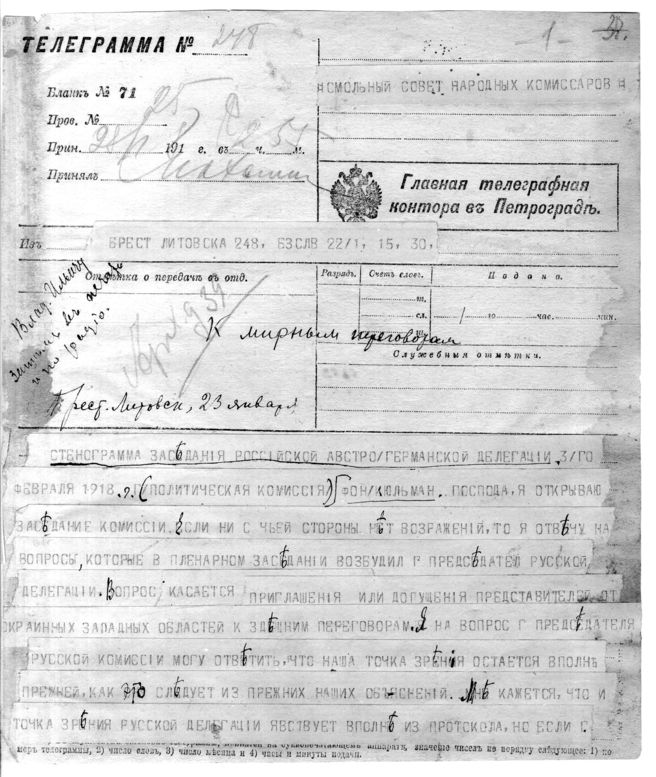 ТЕЛЕГРАММА №
248
- 1 -
Бланкъ № 71
СМОЛЬНЫЙ СОВЕТ НАРОДНЫХ КОМИССАРОВ
Пров. №
Прин. 191 г. въ ч. м.
Принялъ
Главная телеграфная
контора въ Петроградѣ.
Изъ БРЕСТ ЛИТОВСКА 248, 63СЛВ 22/1, 15, 30,
Отмѣтка о передачѣ въ отд.
Разрядъ. Счетъ словъ. Подана.
ш.
сл. / го час. мин.
Влад. Ильичу
и по радіо.
К мирным переговорам
Служебныя отмѣтки.
Брест-Литовск, 23 января
СТЕНОГРАММА ЗАСѢДАНІЯ РОССІЙСКОЙ АВСТРО/ГЕРМАНСКОЙ ДЕЛЕГАЦІИ 3/ГО
ФЕВРАЛЯ 1918 г. (ПОЛИТИЧЕСКАЯ КОМИССІЯ) ФОН/КЮЛЬМАН. ГОСПОДА, Я ОТКРЫВАЮ
ЗАСѢДАНИЕ КОМИССІИ. ЕСЛИ НИ С ЧЬЕЙ СТОРОНЫ НѢТ ВОЗРАЖЕНІЙ, ТО Я ОТВѢЧУ НА
ВОПРОСЫ, КОТОРЫЕ В ПЛЕНАРНОМ ЗАСѢДАНІИ ВОЗБУДИЛ Г ПРЕДСѢДАТЕЛ РУССКОЙ
ДЕЛЕГАЦІИ. ВОПРОС КАСАЕТСЯ ПРИГЛАШЕНІЯ ИЛИ ДОПУЩЕНІЯ ПРЕДСТАВИТЕЛЕЙ ОТ
ОКРАИННЫХ ЗАПАДНЫХ ОБЛАСТЕЙ К ЗДѢШНИМ ПЕРЕГОВОРАМ. Я НА ВОПРОС Г ПРЕДСѢДАТЕЛЯ
РУССКОЙ КОМИССІИ МОГУ ОТВѢТИТЬ, ЧТО НАША ТОЧКА ЗРѢНІЯ ОСТАЕТСЯ ВПОЛНѢ
ПРЕЖНЕЙ, КАК ЭТО СЛѢДУЕТ ИЗ ПРЕЖНИХ НАШИХ ОБ'ЯСНЕНІЙ. МНѢ КАЖЕТСЯ, ЧТО И
ТОЧКА ЗРѢНІЯ РУССКОЙ ДЕЛЕГАЦІИ ЯВСТВУЕТ ВПОЛНѢ ИЗ ПРОТОКОЛА, НО ЕСЛИ Г.
меръ телеграммы, 2) число словъ, 3) число мѣсяца и 4) часы и минуты подачи.